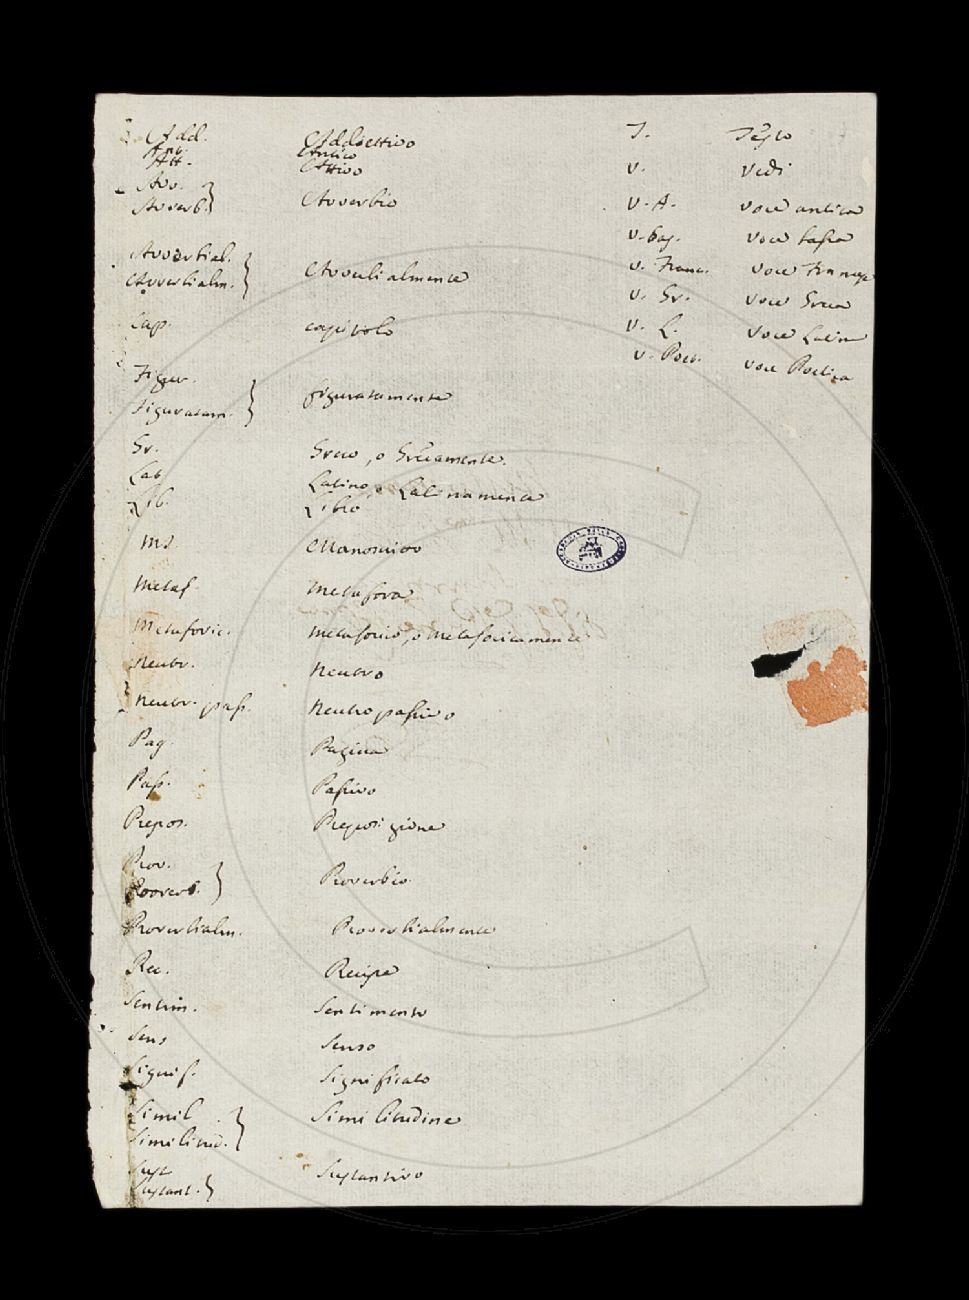 Add. Addiettivo
Ant. Antico
Att. Attivo
Avv.
Avverb. Avverbio
Avverbial.
Avverbialm. Avverbialmente
Cap. capitolo
Figur.
Figuratam. figuratamente
Gr. Greco, o Grecamente.
Lat. Latino, o Latinamente
Lib. Libro
MS. Manoscritto
Metaf. Metafora
Metaforic. Metaforico, o Metaforicamente
Neutr. Neutro
Neutr. pass. Neutro passivo
Pag. Pagina
Pass. Passivo
Prepos. Preposizione
Prov.
Proverb. Proverbio
Proverbialm. Proverbialmente
Rec. Recipe
Sentim. Sentimento
Sens. Senso
Signif. Significato
Simil.
Similitud. Similitudine
Sust.
Sustant. Sustantivo
T. Testo
V. Vedi
V. A. Voce antica
V. bas. Voce bassa
V. Franc. Voce Francese
V. Gr. Voce Greca
V. L. Voce Latina
V. Poet. Voce Poetica